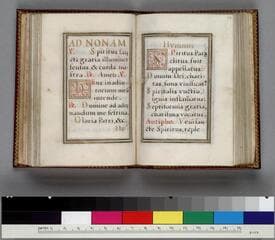 AD NONAM
℣. Spiritus San
cti gratia illuminet
sensus, & corda no
stra. ℟. Amen. ℣.
Deus in adiu
torium meum
intende.
℟. Domine ad adiu
uandum me festina.
Gloria Patri, &c.
Hymnus
Spiritus Para
clitus, fuit
appellatus:
Donum Dei, chari
tas, fons viuificus:
Spiritalis vnctio,
ignis inflammans:
Septiformis gratia,
charisma vocatus.
Antiphona. Veni san
cte Spiritus, reple